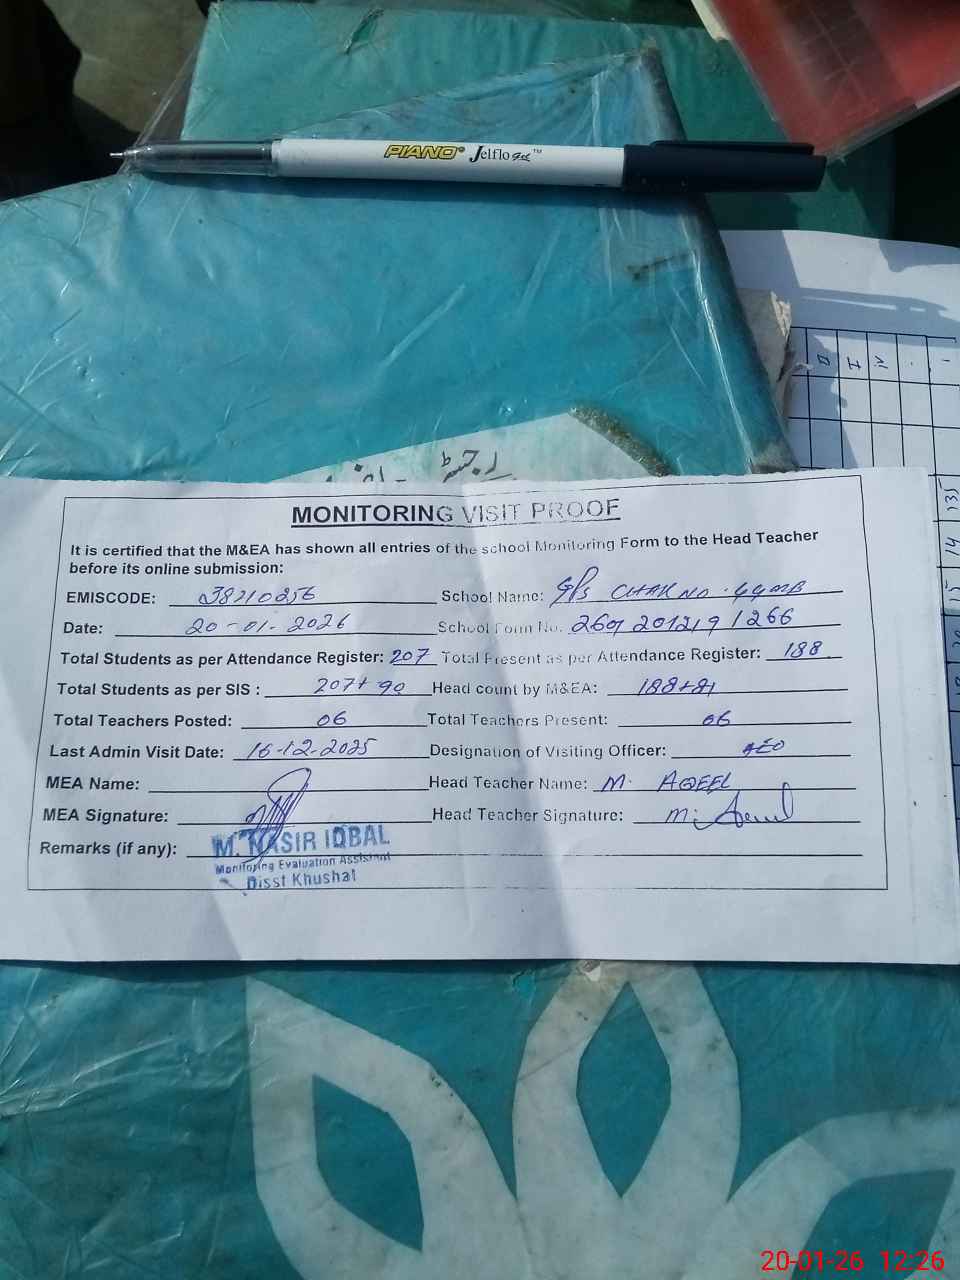 PIANO® Jelflo Gel™
رجسٹر
MONITORING VISIT PROOF
It is certified that the M&EA has shown all entries of the school Monitoring Form to the Head Teacher
before its online submission:
EMISCODE: 38210256 School Name: GPS CHAK NO. 44MB
Date: 20-01-2026 School Form No. 26012012191266
Total Students as per Attendance Register: 207 Total Present as per Attendance Register: 188
Total Students as per SIS : 207+90 Head count by M&EA: 188+81
Total Teachers Posted: 06 Total Teachers Present: 06
Last Admin Visit Date: 16-12-2025 Designation of Visiting Officer: AEO
MEA Name: Head Teacher Name: M. AQEEL
MEA Signature: Head Teacher Signature:
Remarks (if any):
M. NASIR IQBAL
Monitoring Evaluation Assistant
Disst Khushal
20-01-26 12:26